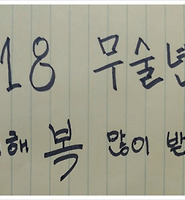 18 무술년
해 복 많이 받